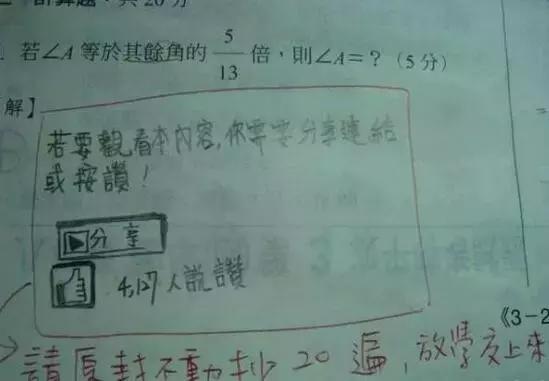 計算題：共 20 分
若∠A 等於其餘角的 5/13 倍，則∠A＝？（5 分）
解】
若要觀看本內容,你需要分享連結
或按讚！
分享
4,127 人說讚
《3-2
請原封不動抄 20 遍，放學交上來